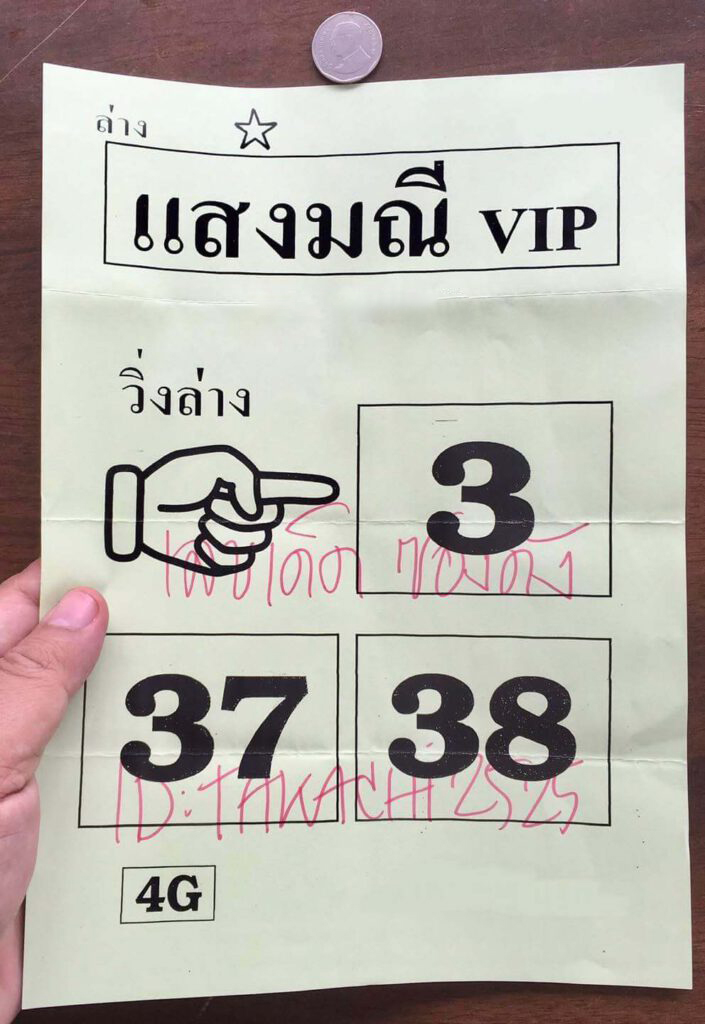 ล่าง
แสงมณี VIP
วิ่งล่าง
3
เลขเด็ด ซองดัง
37 38
ID: TAKACHi2525
4G